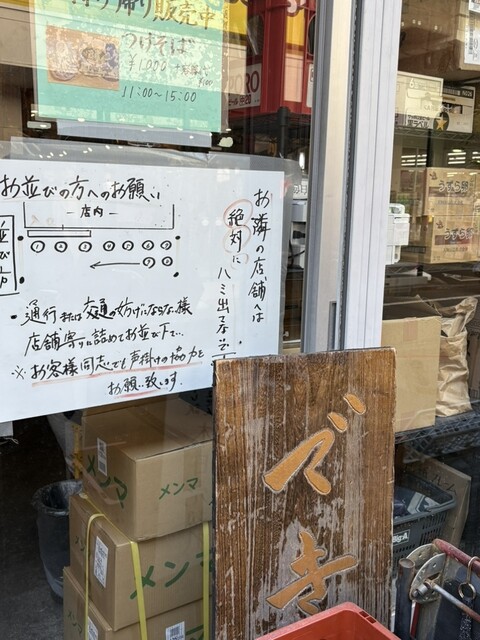 持ち帰り販売中
つけそば
¥1,000
11:00〜15:00
お並びの方へのお願い
店内
お隣の店舗へは
絶対にハミ出さないで下
・通行または交通の妨げにならない様
店舗寄りに詰めてお並び下さい。
※お客様同志でも声掛けの協力を
お願い致します。
メンマ
メンマ
メンマ
うずら卵
Big.A
でき